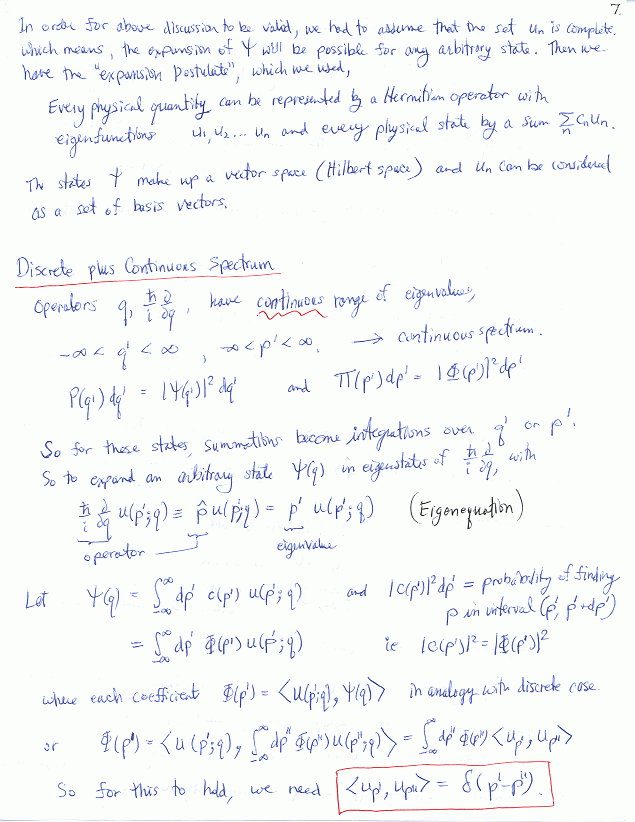 7.
In order for above discussion to be valid, we had to assume that the set un is complete,
which means, the expansion of Ψ will be possible for any arbitrary state. Then we
have the "expansion postulate", which we used,
Every physical quantity can be represented by a Hermitian operator with
eigenfunctions u₁, u₂ ... uₙ and every physical state by a sum Σₙ Cₙuₙ.
The states Ψ make up a vector space (Hilbert space) and uₙ can be considered
as a set of basis vectors.
Discrete plus Continuous Spectrum
Operators q, ħ/i ∂/∂q, have continuous range of eigenvalues,
-∞ < q' < ∞ , -∞ < p' < ∞. → continuous spectrum.
P(q')dq' = |Ψ(q')|² dq' and Π(p')dp' = |Φ(p')|² dp'
So for these states, summations become integrations over q' or p'.
So to expand an arbitrary state Ψ(q) in eigenstates of ħ/i ∂/∂q, with
ħ/i ∂/∂q u(p';q) ≡ p̂ u(p';q) = p' u(p';q) (Eigenequation)
operator eigenvalue
Let Ψ(q) = ∫_{-∞}^{∞} dp' c(p') u(p';q) and |c(p')|² dp' = probability of finding
p in interval (p', p'+dp')
= ∫_{-∞}^{∞} dp' Φ(p') u(p';q) ie |c(p')|² = |Φ(p')|²
where each coefficient Φ(p') = <u(p';q), Ψ(q)> in analogy with discrete case.
or Φ(p') = <u(p';q), ∫_{-∞}^{∞} dp'' Φ(p'') u(p'';q)> = ∫_{-∞}^{∞} dp'' Φ(p'') <u_{p'}, u_{p''}>
So for this to hold, we need <u_{p'}, u_{p''}> = δ(p'-p'').